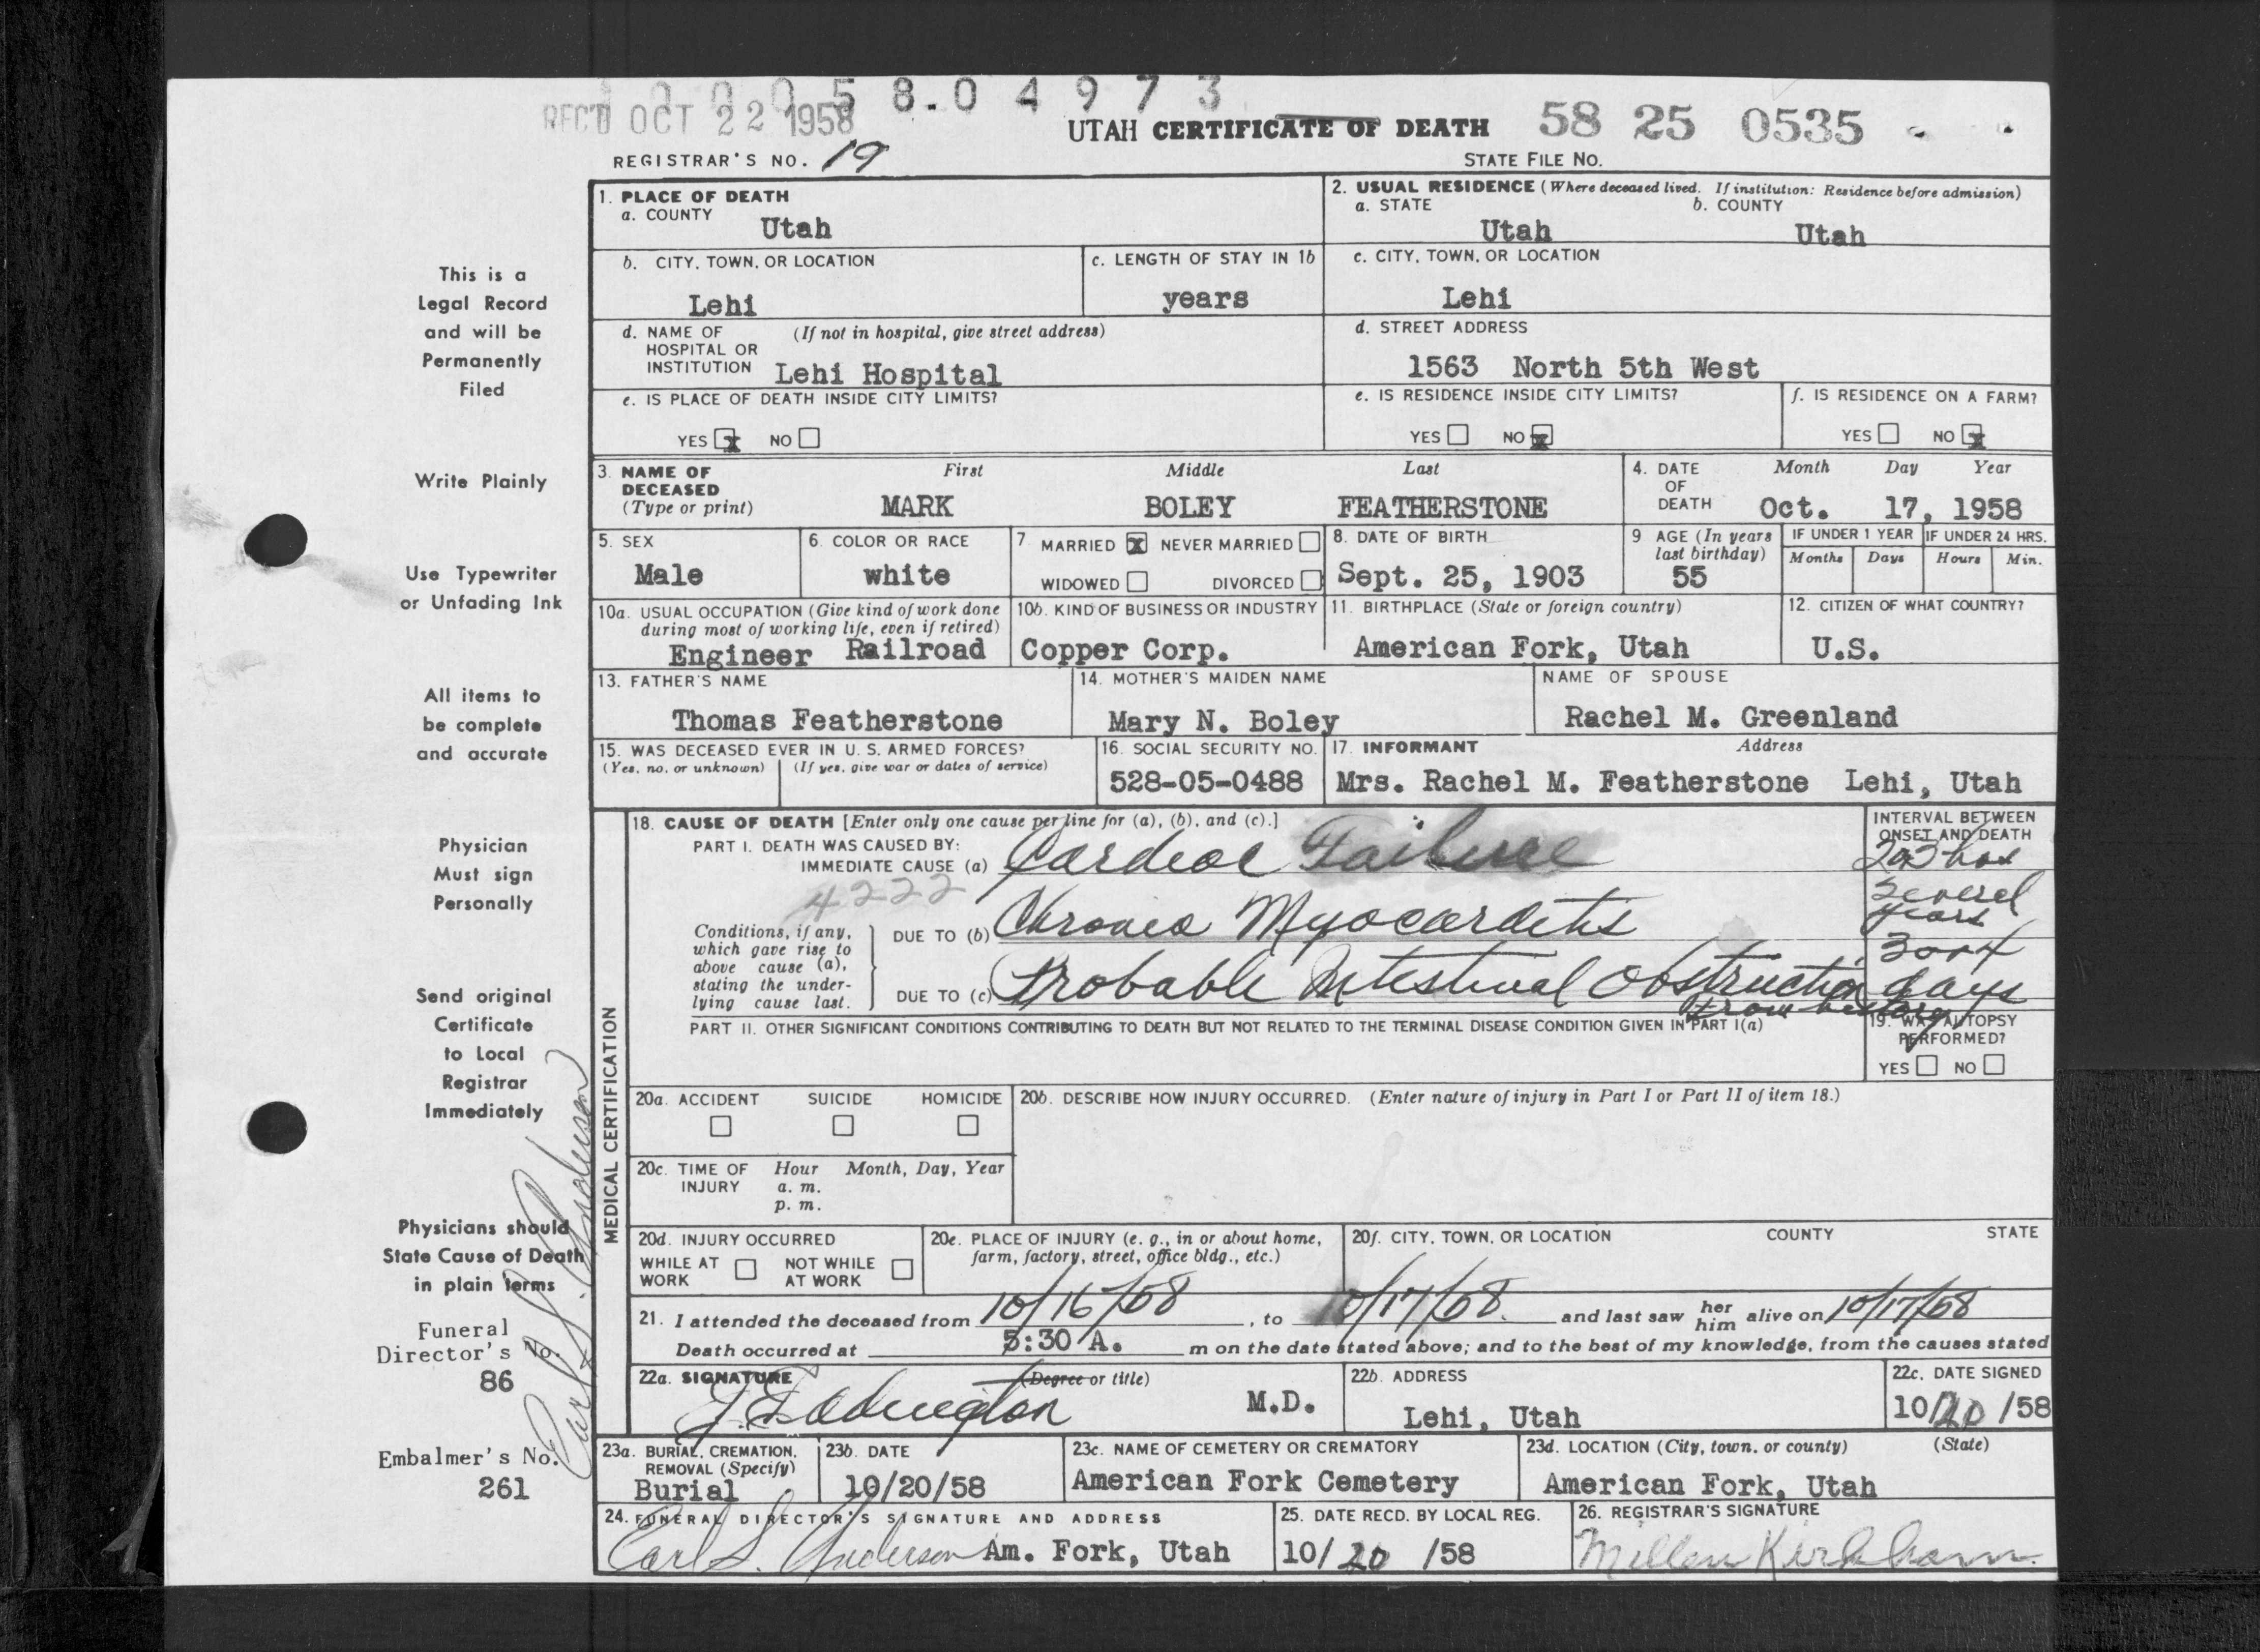 58.04973
REC'D OCT 22 1958
UTAH CERTIFICATE OF DEATH 58 25 0535
REGISTRAR'S NO. 19 STATE FILE No.
1. PLACE OF DEATH
a. COUNTY
Utah
2. USUAL RESIDENCE (Where deceased lived. If institution: Residence before admission)
a. STATE b. COUNTY
Utah Utah
b. CITY, TOWN, OR LOCATION
Lehi
c. LENGTH OF STAY IN 1b
years
c. CITY, TOWN, OR LOCATION
Lehi
d. NAME OF (If not in hospital, give street address)
HOSPITAL OR
INSTITUTION Lehi Hospital
d. STREET ADDRESS
1563 North 5th West
e. IS PLACE OF DEATH INSIDE CITY LIMITS?
YES x NO
e. IS RESIDENCE INSIDE CITY LIMITS?
YES NO x
f. IS RESIDENCE ON A FARM?
YES NO x
3. NAME OF DECEASED
(Type or print)
First Middle Last
MARK BOLEY FEATHERSTONE
4. DATE OF DEATH
Month Day Year
Oct. 17, 1958
5. SEX
Male
6. COLOR OR RACE
white
7 MARRIED x NEVER MARRIED
WIDOWED DIVORCED
8. DATE OF BIRTH
Sept. 25, 1903
9 AGE (In years
last birthday)
55
IF UNDER 1 YEAR IF UNDER 24 HRS.
Months Days Hours Min.
10a. USUAL OCCUPATION (Give kind of work done
during most of working life, even if retired)
Engineer Railroad
10b. KIND OF BUSINESS OR INDUSTRY
Copper Corp.
11. BIRTHPLACE (State or foreign country)
American Fork, Utah
12. CITIZEN OF WHAT COUNTRY?
U.S.
13. FATHER'S NAME
Thomas Featherstone
14. MOTHER'S MAIDEN NAME
Mary N. Boley
NAME OF SPOUSE
Rachel M. Greenland
15. WAS DECEASED EVER IN U. S. ARMED FORCES?
(Yes, no, or unknown) (If yes, give war or dates of service)
16. SOCIAL SECURITY NO.
528-05-0488
17. INFORMANT Address
Mrs. Rachel M. Featherstone Lehi, Utah
MEDICAL CERTIFICATION
18. CAUSE OF DEATH [Enter only one cause per line for (a), (b), and (c).]
PART I. DEATH WAS CAUSED BY:
IMMEDIATE CAUSE (a) Cardiac Failure
4222
Conditions, if any,
which gave rise to
above cause (a),
stating the under-
lying cause last.
DUE TO (b) Chronic Myocarditis
DUE TO (c) Probable Intestinal Obstruction
from history
INTERVAL BETWEEN
ONSET AND DEATH
Several
years
3 or 4
days
PART II. OTHER SIGNIFICANT CONDITIONS CONTRIBUTING TO DEATH BUT NOT RELATED TO THE TERMINAL DISEASE CONDITION GIVEN IN PART I(a)
19. WAS AUTOPSY
PERFORMED?
YES NO
20a. ACCIDENT SUICIDE HOMICIDE
20b. DESCRIBE HOW INJURY OCCURRED. (Enter nature of injury in Part I or Part II of item 18.)
20c. TIME OF INJURY
Hour Month, Day, Year
a. m.
p. m.
20d. INJURY OCCURRED
WHILE AT WORK NOT WHILE AT WORK
20e. PLACE OF INJURY (e. g., in or about home,
farm, factory, street, office bldg., etc.)
20f. CITY, TOWN, OR LOCATION COUNTY STATE
21. I attended the deceased from 10/16/58, to 10/17/58. and last saw her him alive on 10/17/58
Death occurred at 5:30 A. m on the date stated above; and to the best of my knowledge, from the causes stated
22a. SIGNATURE (Degree or title)
J. Eddington M.D.
22b. ADDRESS
Lehi, Utah
22c. DATE SIGNED
10/20/58
23a. BURIAL, CREMATION,
REMOVAL (Specify)
Burial
23b. DATE
10/20/58
23c. NAME OF CEMETERY OR CREMATORY
American Fork Cemetery
23d. LOCATION (City, town, or county) (State)
American Fork, Utah
24. FUNERAL DIRECTOR'S SIGNATURE AND ADDRESS
Earl S. Anderson Am. Fork, Utah
25. DATE RECD. BY LOCAL REG.
10/20/58
26. REGISTRAR'S SIGNATURE
Kirkham
This is a
Legal Record
and will be
Permanently
Filed
Write Plainly
Use Typewriter
or Unfading Ink
All items to
be complete
and accurate
Physician
Must sign
Personally
Send original
Certificate
to Local
Registrar
Immediately
Physicians should
State Cause of Death
in plain terms
Funeral
Director's No.
86
Embalmer's No.
261
Earl S. Anderson